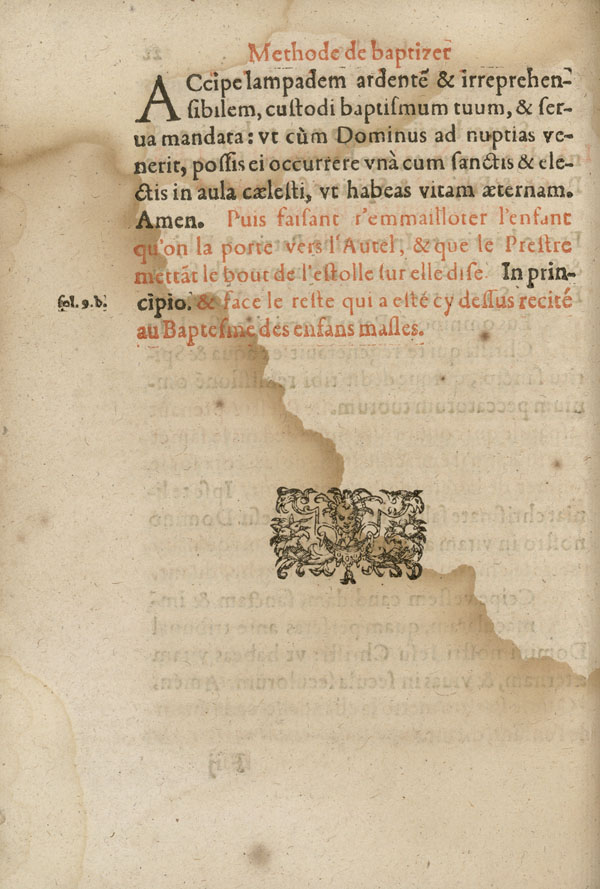 Methode de baptizer
ACcipe lampadem ardentẽ & irreprehen-
sibilem, custodi baptismum tuum, & ser-
ua mandata: vt cùm Dominus ad nuptias ve-
nerit, possis ei occurrere vnà cum sanctis & ele-
ctis in aula cælesti, vt habeas vitam æternam.
Amen. Puis faisant r'emmailloter l'enfant
qu'on la porte vers l'Autel, & que le Prestre
mettãt le bout de l'estolle sur elle dise. In prin-
fol. 9. b. cipio. & face le reste qui a esté cy dessus recité
au Baptesme des enfans masles.